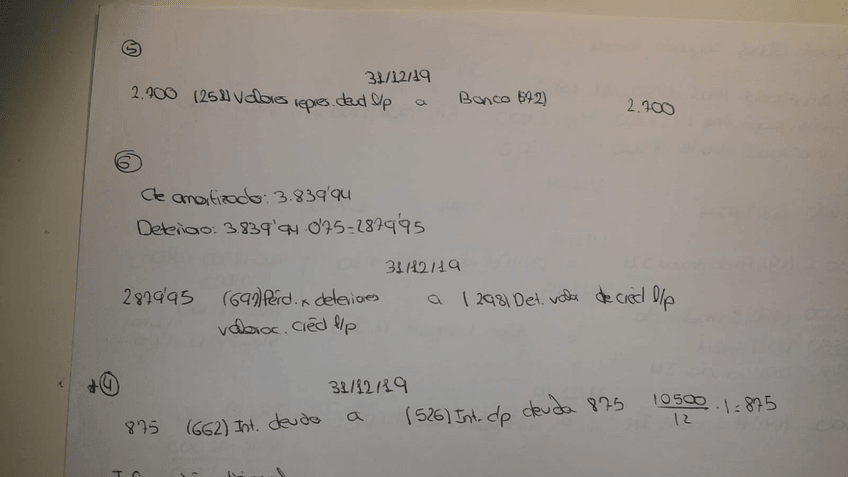 5
31/12/19
2.700 (251) Valores repres. deud l/p a Banco (572) 2.700
6
Cte amortizado: 3.839'94
Deterioro: 3.839'94 · 0'75 = 2879'95
31/12/19
2879'95 (697) Pérd. x deterioro a (298) Det. valor de créd l/p
valorac. créd l/p
* 4
31/12/19
875 (662) Int. deuda a (526) Int. c/p deuda 875 10500/12 · 1 = 875